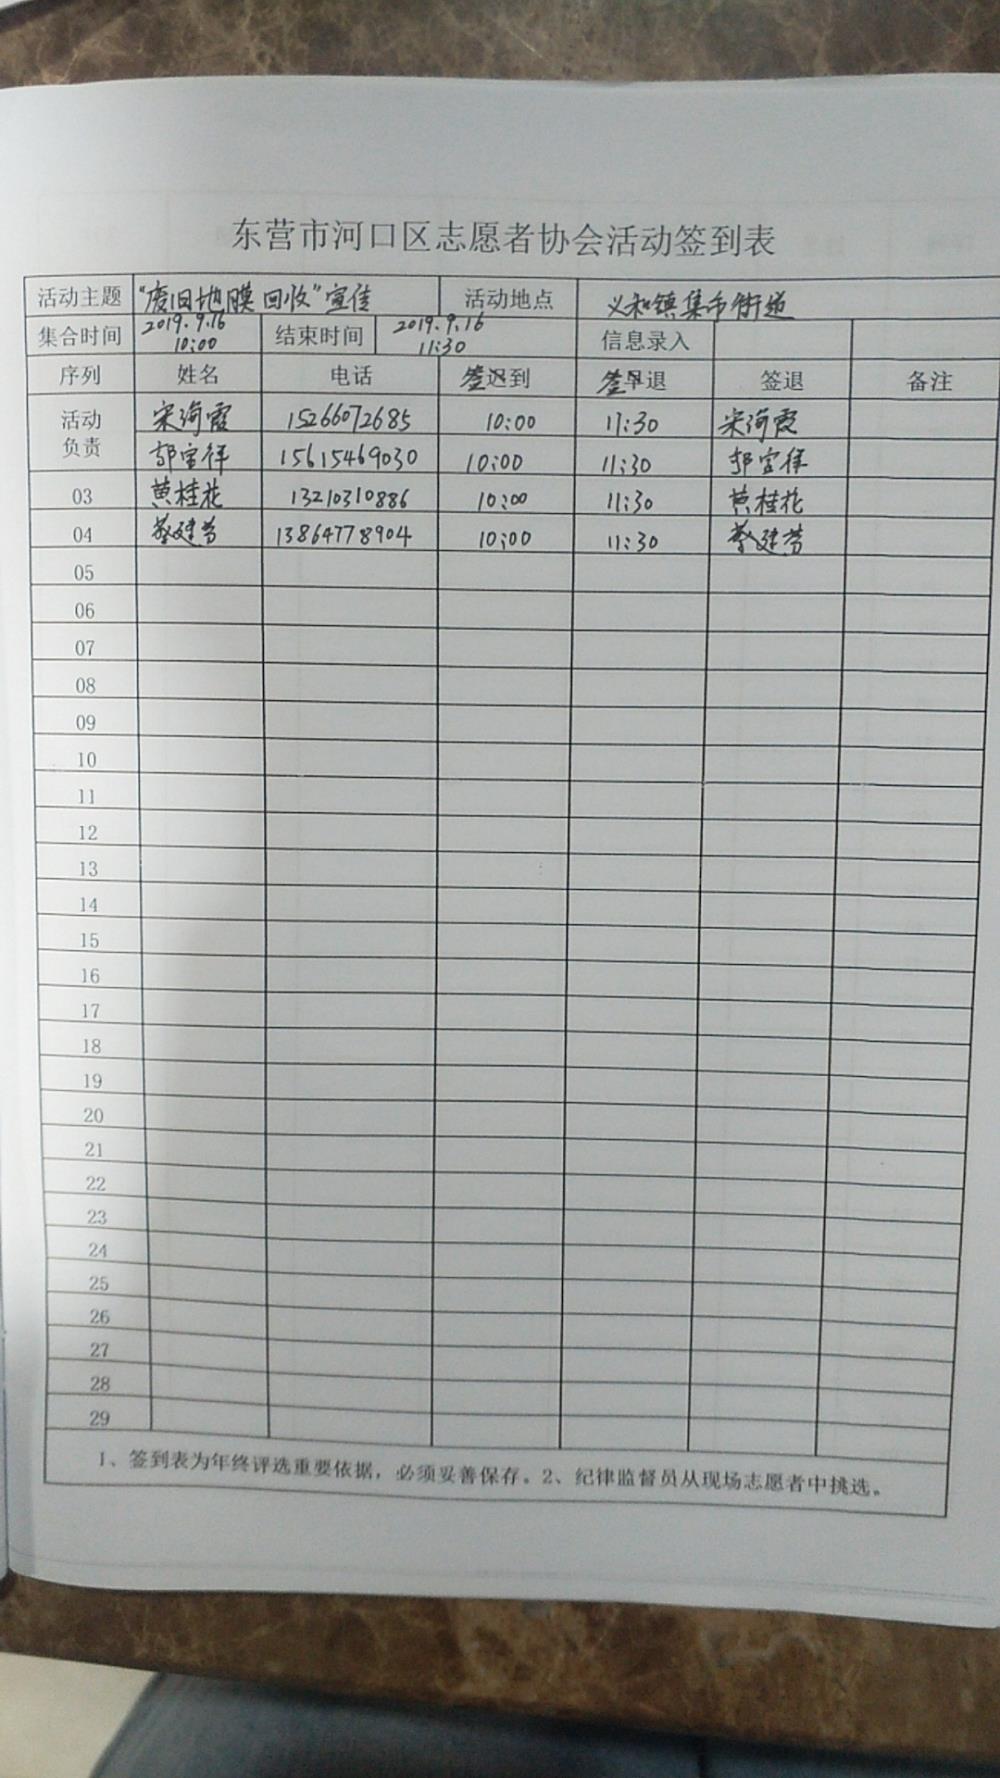 东营市河口区志愿者协会活动签到表
活动主题 "废旧地膜回收"宣传 活动地点 义和镇集市街道
集合时间 2019.9.16 10:00 结束时间 2019.9.16 11:30 信息录入
序列 姓名 电话 签到 签退 签退 备注
活动负责 宋绮霞 15266072685 10:00 11:30 宋绮霞
郭宝祥 15615469030 10:00 11:30 郭宝祥
03 黄桂花 13210310886 10:00 11:30 黄桂花
04 蔡建芳 13864778904 10:00 11:30 蔡建芳
05
06
07
08
09
10
11
12
13
14
15
16
17
18
19
20
21
22
23
24
25
26
27
28
29
1、签到表为年终评选重要依据，必须妥善保存。2、纪律监督员从现场志愿者中挑选。